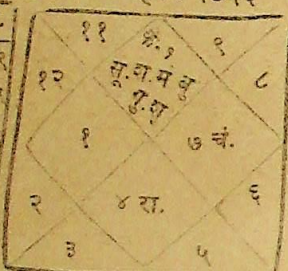 ११ के. १ ९
१२ सू. श. मं बु ८
गु. शु
१ ७ चं.
२ ४ रा. ६
३ ५